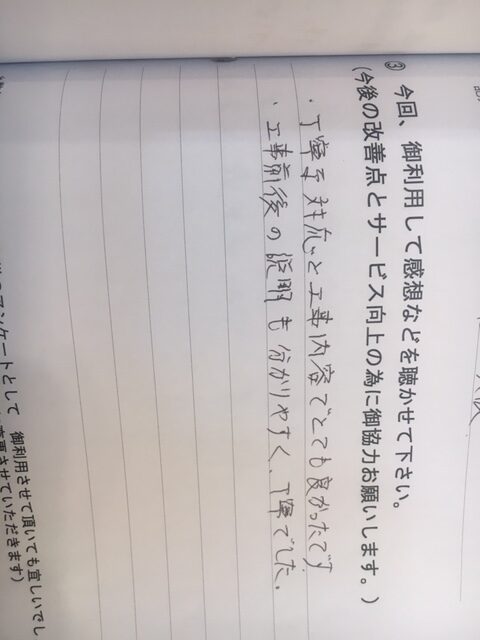 ③ 今回、御利用して感想などを聴かせて下さい。
(今後の改善点とサービス向上の為に御協力お願いします。)
・丁寧な対応と工事内容でとても良かったです
・工事前後の説明も分かりやすく、丁寧でした。
アンケートとして 御利用させて頂いても宜しいでし
変更させていただきます)